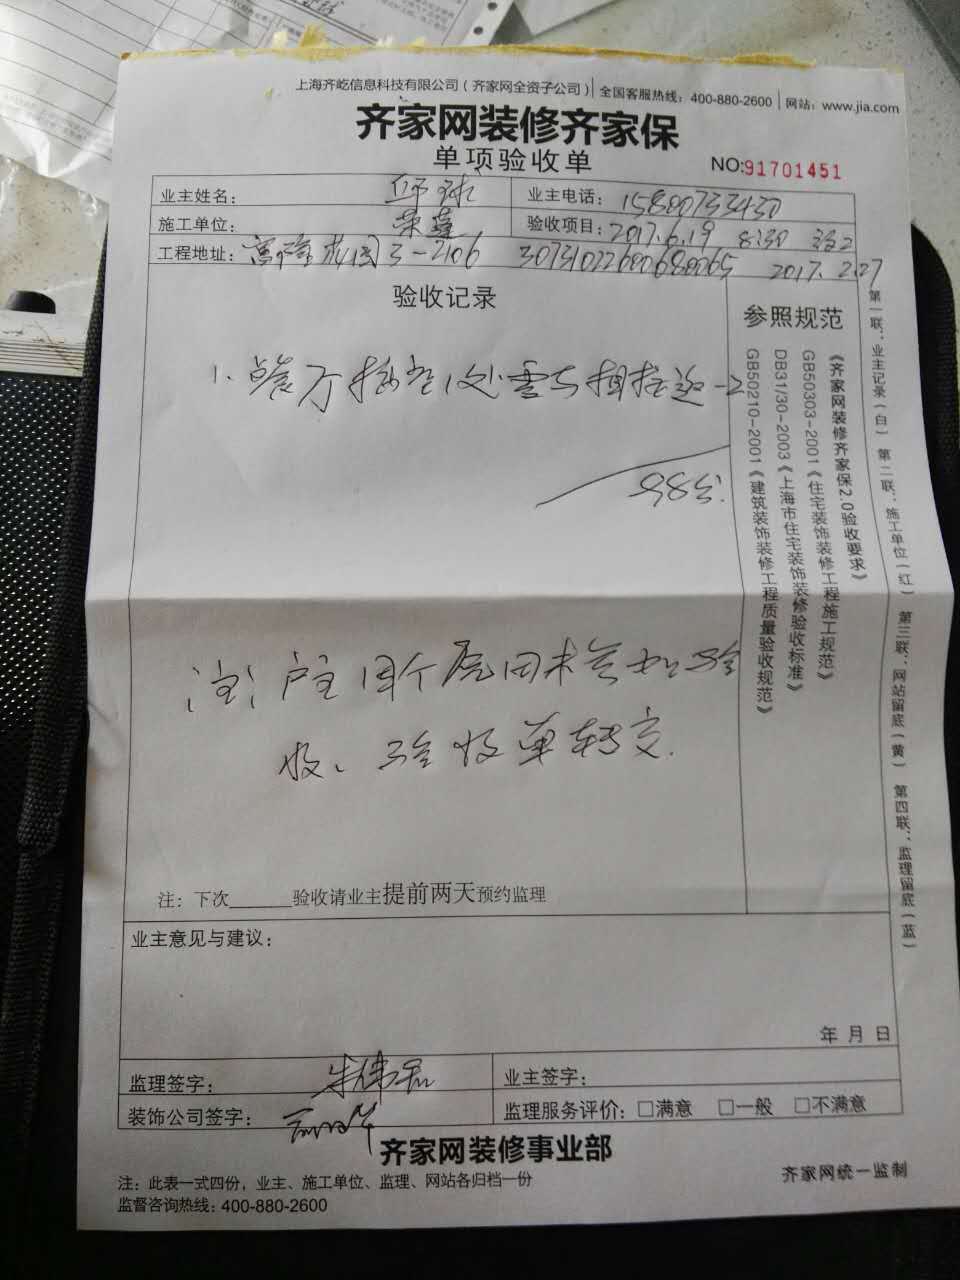 上海齐屹信息科技有限公司（齐家网全资子公司） 全国客服热线：400-880-2600 网站：www.jia.com
齐家网装修齐家保
单项验收单
NO:91701451
业主姓名： 业主电话：15800733430
施工单位：荣蓬 验收项目：2017.6.19 8:30
工程地址： 3-2106 30731022600680065 2017.2.27
验收记录
参照规范
《齐家网装修齐家保2.0验收要求》
GB50303-2001《住宅装饰装修工程施工规范》
DB31/30-2003《上海市住宅装饰装修验收标准》
GB50210-2001《建筑装饰装修工程质量验收规范》
第一联：业主记录（白） 第二联：施工单位（红） 第三联：网站留底（黄） 第四联：监理留底（蓝）
1、餐厅 1处
98分
注：户主因个 验
收、验收单转交.
注：下次______验收请业主提前两天预约监理
业主意见与建议：
年 月 日
监理签字： 业主签字：
装饰公司签字： 监理服务评价：□满意 □一般 □不满意
齐家网装修事业部
注：此表一式四份，业主、施工单位、监理、网站各归档一份
齐家网统一监制
监督咨询热线：400-880-2600